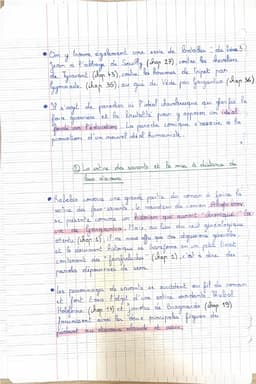 • On y trouve également une série de batailles : de frère
Jean à l'abbaye de Seuilly (chap 27), contre les chevaliers
de Tyravant (chap 43), contre les hommes de Tripet par
Gymnaste (chap 35), au gué de Vède par Gargantua (chap 36)
• Il s'agit de parodier l'idéal chevaleresque qui glorifie la
force guerrière et la brutalité pour y opposer un idéal
fondé sur l'éducation. La parodie comique s'associe à la
promotion d'un nouvel idéal humaniste.
La satire des savants et la mise à distance de
leur discours
• Rabelais consacre une grande partie du roman à faire la
satire des faux-savants : le narrateur du roman
se présente comme un historien qui aurait
de Gargantua. Mais, au lieu du récit généalogique
attendu (chap 1), il ne nous offre que des
et le document historique se transforme en un petit livret
contenant des "fanfreluches" (chap 2), c'est à dire des
paroles dépourvues de sens.
• Les personnages de savants se succèdent au fil du roman
et font tous l'objet d'une satire mordante. Thubal
Holoferne (chap 14) et Janotus de Bragmardo (chap 19)
fournissent ainsi les deux principales figures de